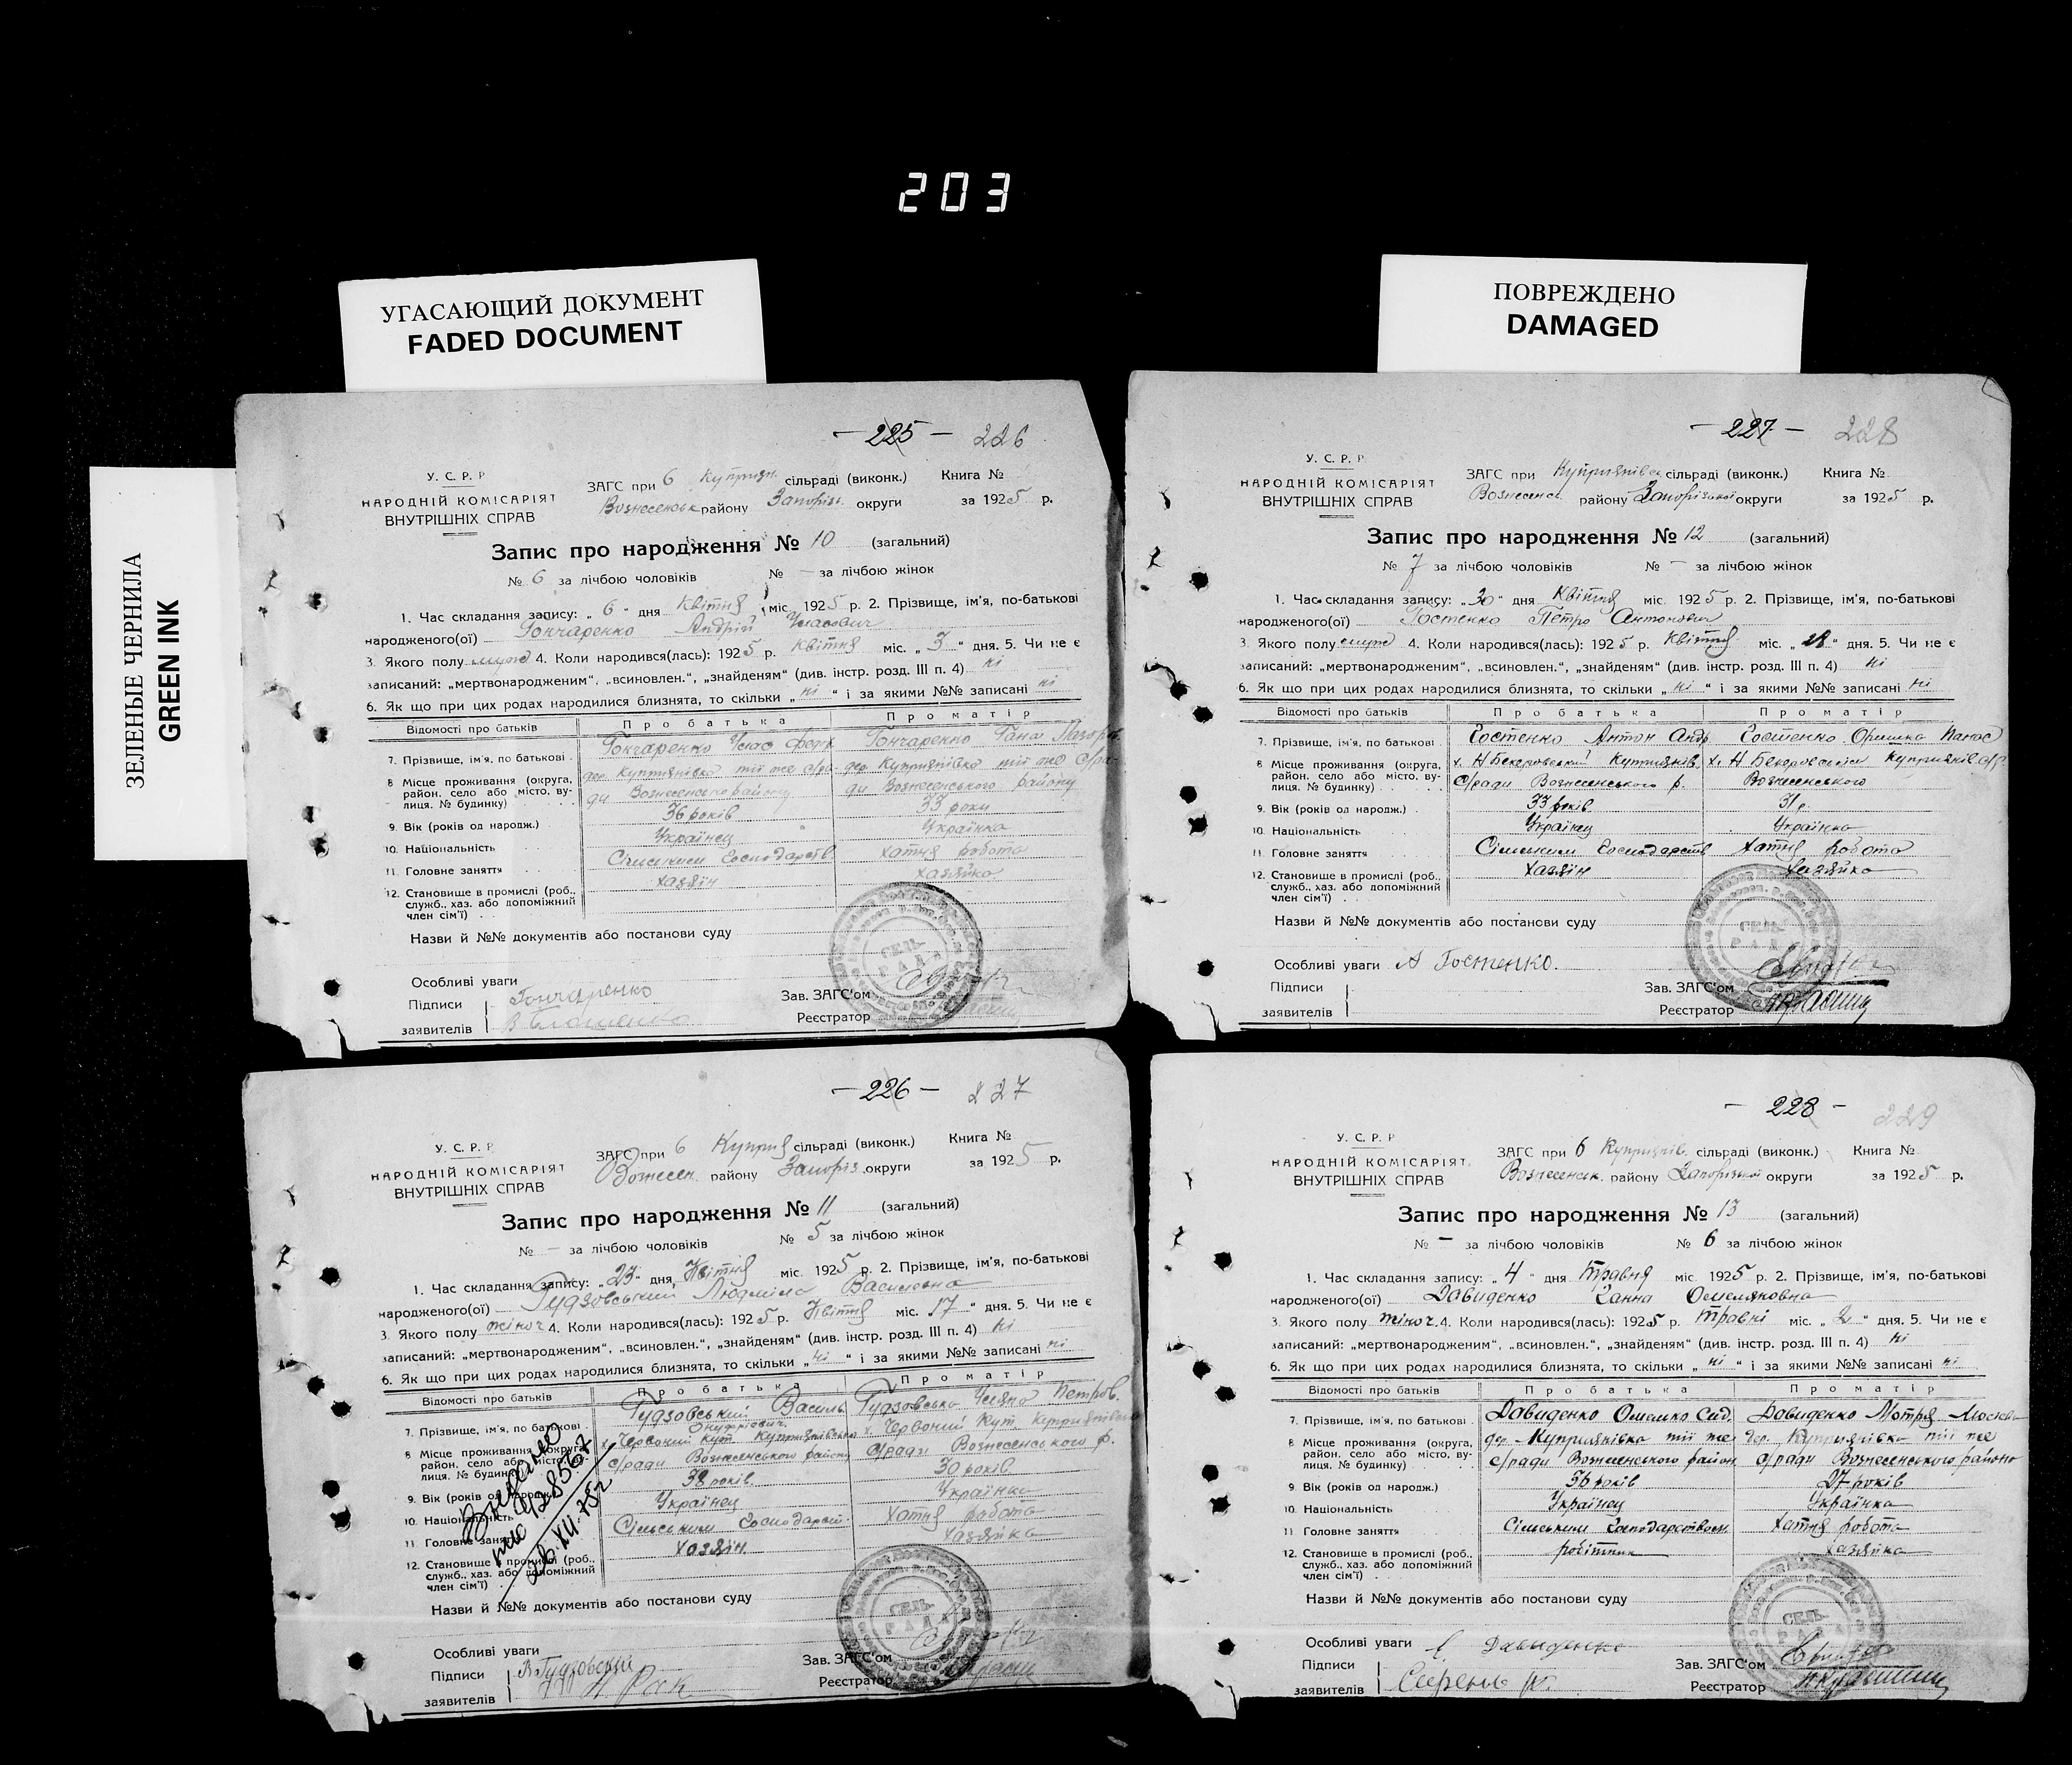 203
УГАСАЮЩИЙ ДОКУМЕНТ
FADED DOCUMENT
ПОВРЕЖДЕНО
DAMAGED
ЗЕЛЕНЫЕ ЧЕРНИЛА
GREEN INK
— 225 — 226
У. С. Р. Р
НАРОДНІЙ КОМІСАРІЯТ
ВНУТРІШНІХ СПРАВ
ЗАГС при 6 Куприян. сільраді (виконк.) Книга №
Вознесенськ району Запоріз. округи за 1925 р.
Запис про народження № 10 (загальний)
№ 6 за лічбою чоловіків № — за лічбою жінок
1. Час складання запису: „6“ дня Квітня міс. 1925 р. 2. Прізвище, ім'я, по-батькові
народженого(ої) Гончаренко Андрій
3. Якого полу 4. Коли народився(лась): 1925 р. Квітня міс. „3“ дня. 5. Чи не є
записаний: „мертвонародженим“, „всиновлен.“, „знайденям“ (див. інстр. розд. III п. 4) ні
6. Як що при цих родах народилися близнята, то скільки „ні“ і за якими №№ записані ні
Відомості про батьків Про батька Про матір
7. Прізвище, ім'я, по батькові Гончаренко Гончаренко Гана
8 Місце проживання (округа, район, село або місто, вулиця. № будинку) дер. Куприянівка тії же с/ради Вознесенського району дер. Куприянівка тії же с/ради Вознесенського району
9. Вік (років од народж.) 36 років 33 роки
10. Національність Українец Українка
11. Головне заняття Сільським Господарств Хатня робота
12. Становище в промислі (роб., служб., хаз. або допоміжний член сім'ї) Хазяїн Хазяйка
Назви й №№ документів або постанови суду
СЕЛЬ-
РАДА
Особливі уваги
Підписи Гончаренко Зав. ЗАГС'ом
заявителів Реєстратор
— 227 — 228
У. С. Р. Р
НАРОДНІЙ КОМІСАРІЯТ
ВНУТРІШНІХ СПРАВ
ЗАГС при Куприянівск сільраді (виконк.) Книга №
Вознесенс. району Запорізькой округи за 1925 р.
Запис про народження № 12 (загальний)
№ 7 за лічбою чоловіків № — за лічбою жінок
1. Час складання запису: „30“ дня Квітня міс. 1925 р. 2. Прізвище, ім'я, по-батькові
народженого(ої) Гостенко Петро Антонович
3. Якого полу 4. Коли народився(лась): 1925 р. Квітня міс. дня. 5. Чи не є
записаний: „мертвонародженим“, „всиновлен.“, „знайденям“ (див. інстр. розд. III п. 4) ні
6. Як що при цих родах народилися близнята, то скільки „ні“ і за якими №№ записані ні
Відомості про батьків Про батька Про матір
7. Прізвище, ім'я, по батькові Гостенко Антон Андр Гостенко Оришка Панас
8 Місце проживання (округа, район, село або місто, вулиця. № будинку) Куприянів. с/ради Вознесенського р. Куприянів с/р. Вознесенського
9. Вік (років од народж.) 33 років 31 р.
10. Національність Українец Українка
11. Головне заняття Сільським Господарств Хатня робота
12. Становище в промислі (роб., служб., хаз. або допоміжний член сім'ї) Хазяїн Хазяйка
Назви й №№ документів або постанови суду
СЕЛЬ-
РАДА
Особливі уваги А Гостенко.
Підписи Зав. ЗАГС'ом
заявителів Реєстратор
— 226 — 227
У. С. Р. Р
НАРОДНІЙ КОМІСАРІЯТ
ВНУТРІШНІХ СПРАВ
ЗАГС при 6 Куприя сільраді (виконк.) Книга №
району Запоріз. округи за 1925 р.
Запис про народження № 11 (загальний)
№ — за лічбою чоловіків № 5 за лічбою жінок
1. Час складання запису: „23“ дня Квітня міс. 1925 р. 2. Прізвище, ім'я, по-батькові
народженого(ої) Гудзовський Людміла Василевна
3. Якого полу жіноч. 4. Коли народився(лась): 1925 р. Квітня міс. „17“ дня. 5. Чи не є
записаний: „мертвонародженим“, „всиновлен.“, „знайденям“ (див. інстр. розд. III п. 4) ні
6. Як що при цих родах народилися близнята, то скільки „ні“ і за якими №№ записані ні
Відомості про батьків Про батька Про матір
7. Прізвище, ім'я, по батькові Гудзовський Василь Гудзовська Петров.
8 Місце проживання (округа, район, село або місто, вулиця. № будинку) х. Червоний кут Куприянівська с/ради Вознесенського району х. Червоний Кут с/ради Вознесенського р.
9. Вік (років од народж.) 38 років 30 років
10. Національність Українец Українка
11. Головне заняття Сільським Господарст. Хатня робота
12. Становище в промислі (роб., служб., хаз. або допоміжний член сім'ї) Хазяїн. Хазяйка
Назви й №№ документів або постанови суду
СЕЛЬ-
РАДА
Особливі уваги
Підписи В. Гудзовский Зав. ЗАГС'ом
заявителів Реєстратор
— 228 — 229
У. С. Р. Р
НАРОДНІЙ КОМІСАРІЯТ
ВНУТРІШНІХ СПРАВ
ЗАГС при 6 Куприянів. сільраді (виконк.) Книга №
Вознесенськ. району Запорізькой округи за 1925 р.
Запис про народження № 13 (загальний)
№ — за лічбою чоловіків № 6 за лічбою жінок
1. Час складання запису: „4“ дня Травня міс. 1925 р. 2. Прізвище, ім'я, по-батькові
народженого(ої) Давиденко Ганна Омеляновна
3. Якого полу жіноч. 4. Коли народився(лась): 1925 р. Травні міс. „2“ дня. 5. Чи не є
записаний: „мертвонародженим“, „всиновлен.“, „знайденям“ (див. інстр. розд. III п. 4) ні
6. Як що при цих родах народилися близнята, то скільки „ні“ і за якими №№ записані ні
Відомості про батьків Про батька Про матір
7. Прізвище, ім'я, по батькові Давиденко Омелько Сид. Давиденко Мотря
8 Місце проживання (округа, район, село або місто, вулиця. № будинку) дер. Куприянівка тії же с/ради Вознесенського район дер. Куприянівка тії же с/ради Вознесенського району
9. Вік (років од народж.) 36 років 27 років
10. Національність Українец Українка
11. Головне заняття Сільським Господарством Хатня робота
12. Становище в промислі (роб., служб., хаз. або допоміжний член сім'ї) робітник Хазяйка
Назви й №№ документів або постанови суду
СЕЛЬ-
РАДА
Особливі уваги Давиденко
Підписи Зав. ЗАГС'ом
заявителів Реєстратор